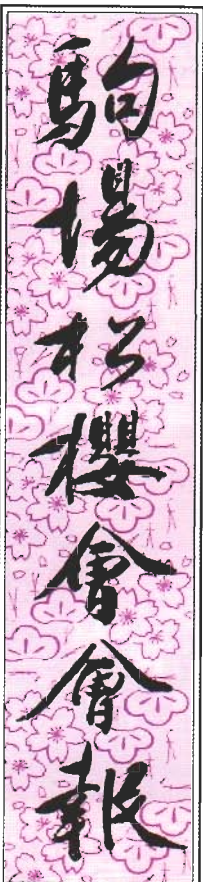 駒場松櫻會會報